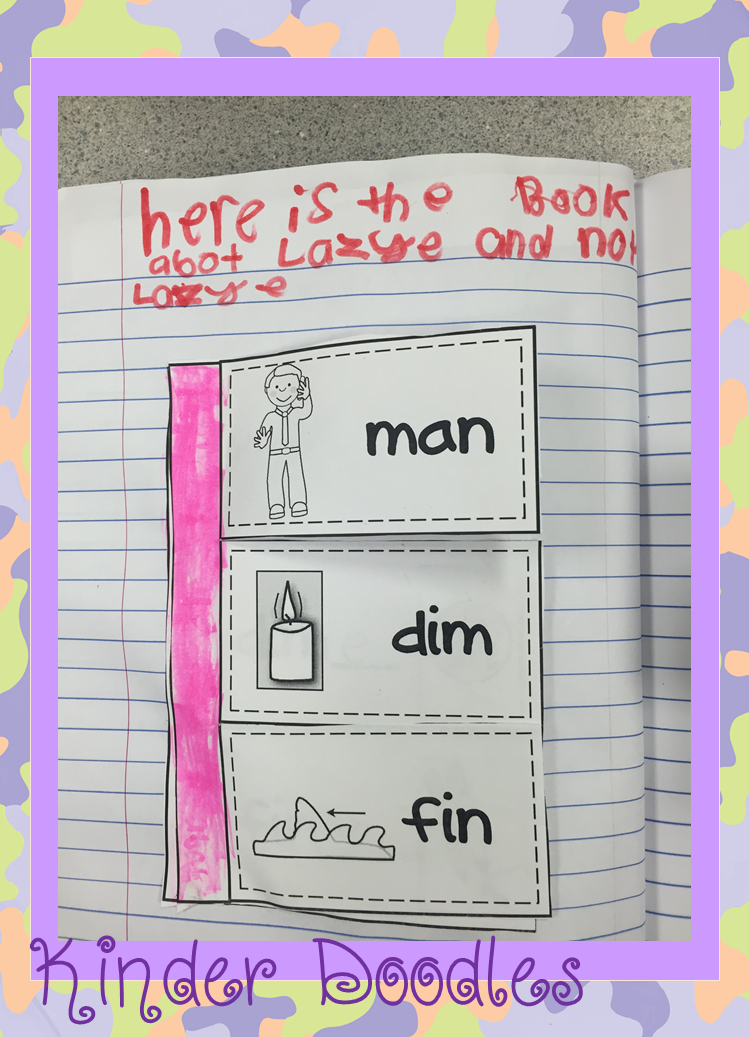 here is the Book
abot Lazye and not
Lazye
man
dim
fin
Kinder Doodles